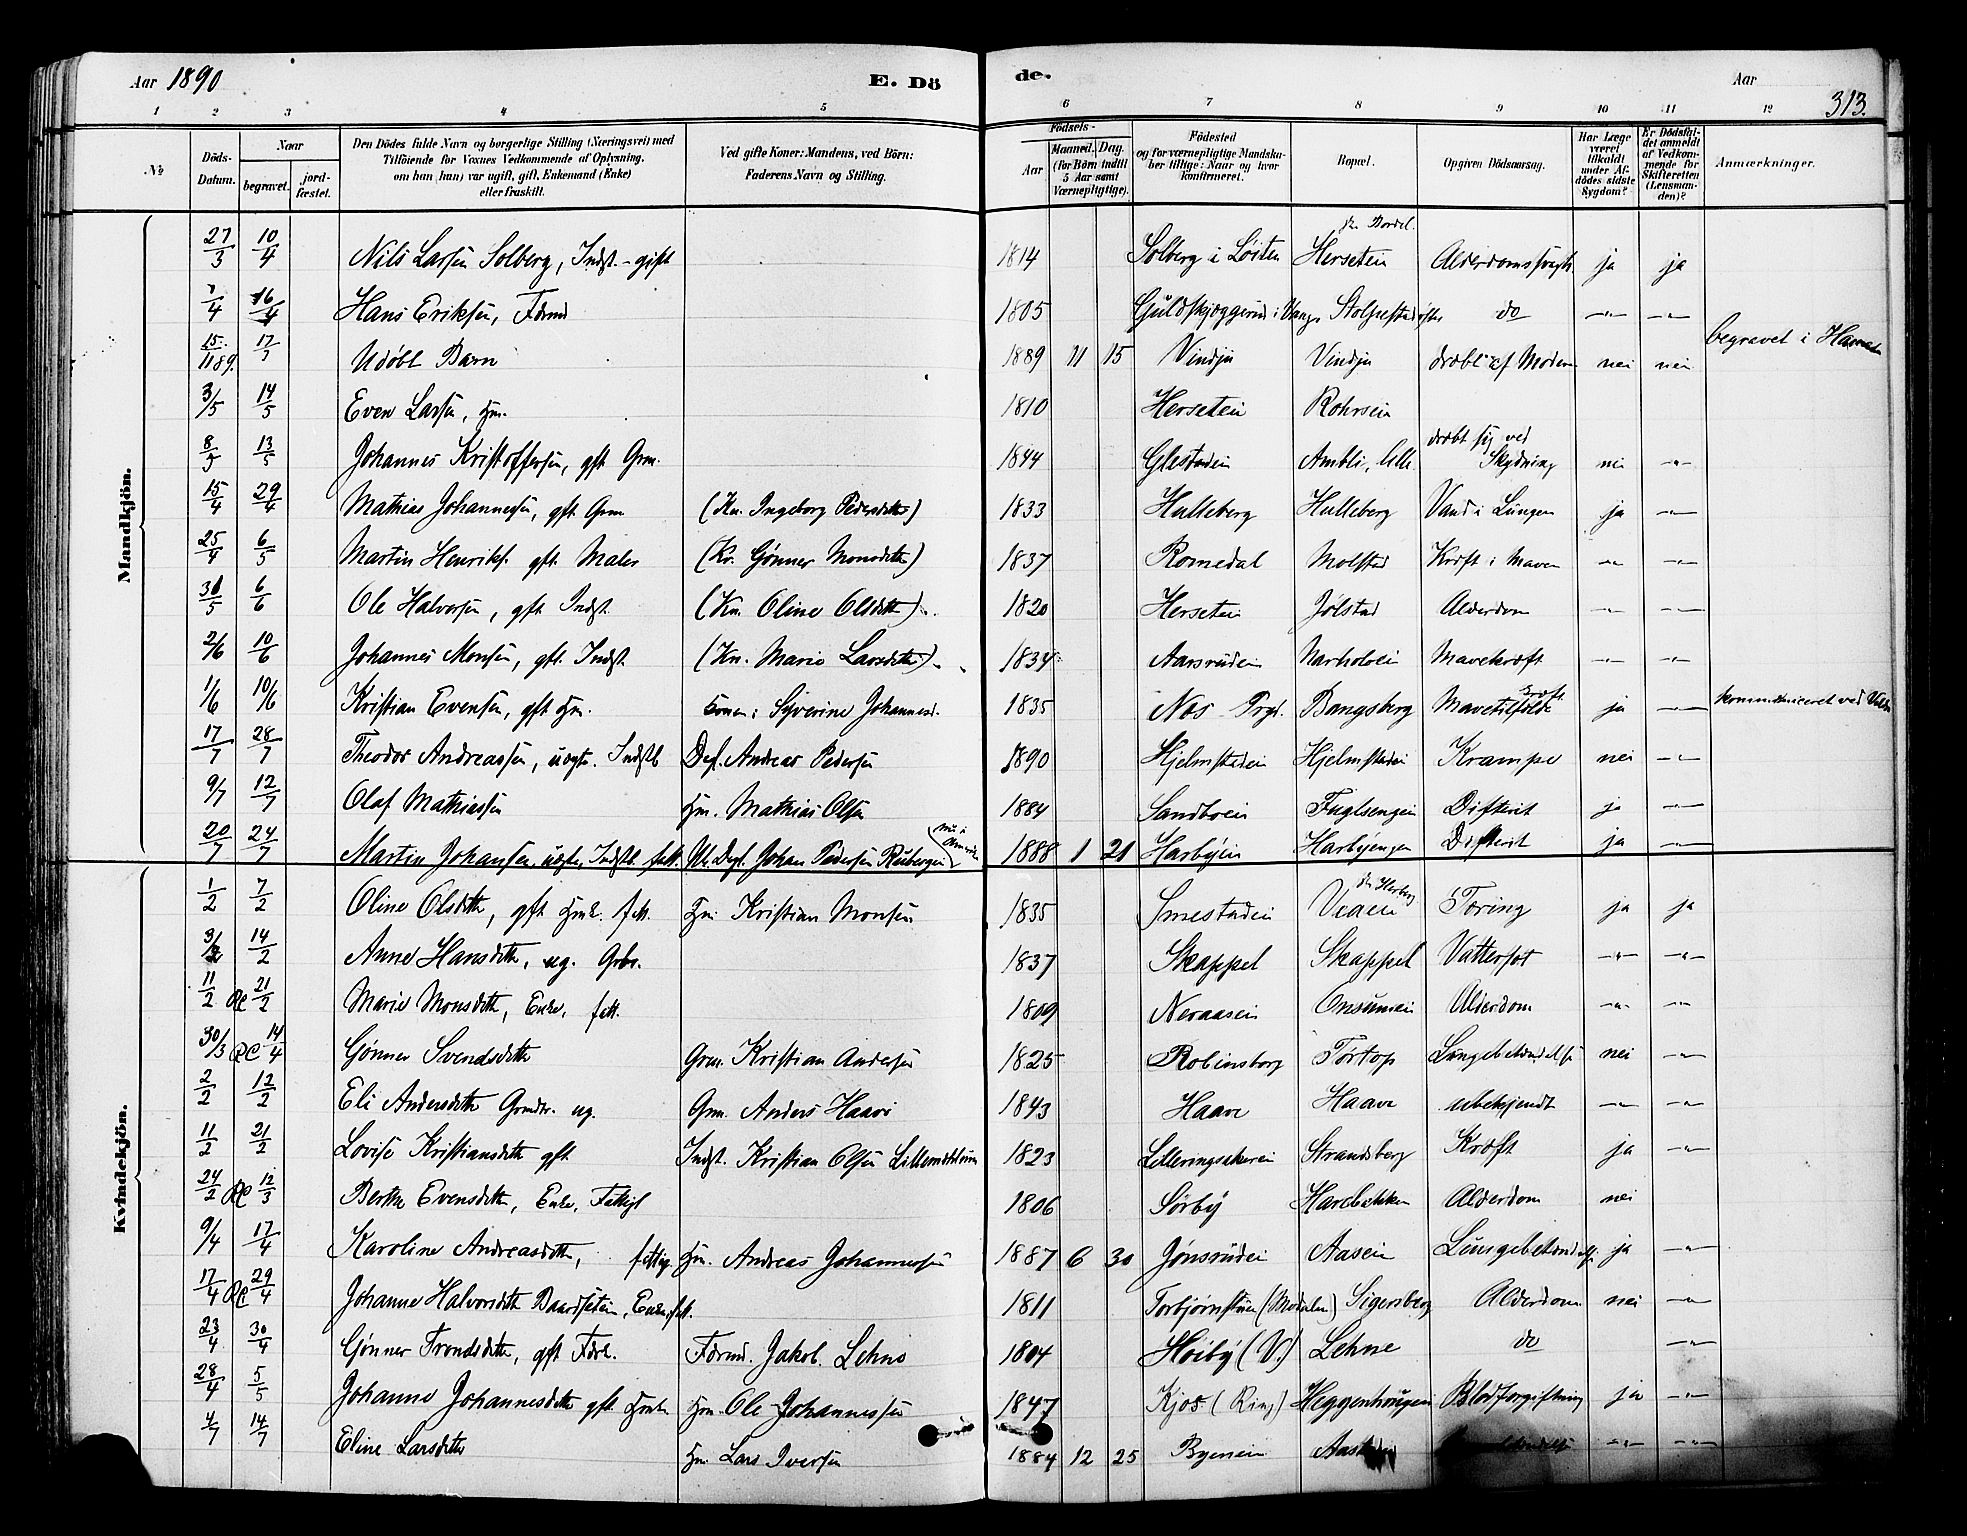 Aar 1890 E. Dö de. Aar
313.
1 2 3 4 5 6 7 8 9 10 11 12
№ Döds-Datum. Naar begravet. jord-fæstet. Den Dödes fulde Navn og borgerlige Stilling (Næringsvei) med Tilföiende for Voxnes Vedkommende af Oplysning. om han (hun) var ugift, gift, Enkemand (Enke) eller fraskilt. Ved gifte Koner: Mandens, ved Börn: Faderens Navn og Stilling. Födsels- Aar Maaned. Dag. (for Börn indtil 5 Aar samt Værnepligtige). Födested og for værnepligtige Mandskaber tillige: Naar og hvor konfirmeret. Bopæl. Opgiven Dödsaarsag. Har Læge været tilkaldt under Afdödes sidste Sygdom? Er Dödsfaldet anmeldt af Vedkommende for Skifteretten (Lensmanden)? Anmærkninger.
Mandkjön.
27/3 10/4 Nils Larsen Solberg, Indst. - gift 1814 Solberg i Løiten Herseten Alderdomssvagh. ja ja
/4 16/4 Hans Eriksen, Fdrmd 1805 i Vang do -"- -"-
15/11 89. 17/ Udøbt Barn 1889 11 15 Vindju Vindju dræbt af Moderen nei nei begravet i Hamar
3/5 14/5 Even Larsen, Hm. 1810 Herseteie
8/5 13/5 Johannes Kristoffersen, gft Grm. 1844 Glestadeie Ambli, lille dræbt sig ved Skydning nei -"-
15/4 29/4 Mathias Johannessen, gft. Grm (Kn. Ingeborg Pedersdatter) 1833 Hulleberg Hulleberg Vand i Lungen ja -"-
25/4 6/5 Martin Henriks. gft. Maler (Kn. Gønner Monsdtr) 1837 Romedal Molstad Kræft i Maven -"- -"-
31/5 6/6 Ole Halvorsen, gft Indst. (Kn. Oline Olsdtr). 1820 Herseteie Jølstad Alderdom -"- -"-
2/6 10/6 Johannes Monsen, gft. Indst. (Kn. Marie Larsdtr). 1834 Aarsrudeie Mavekræft -"- -"-
1/6 10/6 Kristian Evensen, gft Hm. Konen: Syverine Johannesd. 1835 Næs Prgd. Bangsberg ja -"- kommuniceret ved
17/7 28/7 Theodor Andreassen, uægte. Indstb Dagl. Andreas Pedersen 1890 Hjelmstadeie Hjelmstadeie Krampe nei -"-
9/7 12/7 Olaf Mathiassen Hm. Mathias Olsen 1884 Sandboeie Fuglsengen Difterit ja -"-
20/7 24/7 Martin Johansen, uægte, Indstb. fatt. Johan Pedersen (nu i Amerika) 1888 1 21 Harbyeie Harbyengen Difterit ja -"-
Kvindekjön.
1/2 7/2 Oline Olsdtr, gft Hmk. fatt. Hm. Kristian Monsen 1835 Smestadeie Tæring ja ja
3/2 14/2 Anne Hansdtr, ug. Grbr. 1837 Skappel Skappel Vattersot -"- -"-
11/2 RC 21/2 Marie Monsdtr, Enke, fatt. 1809 Neraaseie Onsumeie Alderdom -"- -"-
30/3 RC 14/4 Gønner Svendsdtr Grm. Kristian Andersen 1825 Robinsborg Tørtop Lungebetændelse nei -"-
2/2 12/2 Eli Andersdtr Grmdtr. ug. Grm. Anders Haave 1843 Haave Haave ubekjendt -"- -"-
11/2 21/2 Lovise Kristiansdtr gft Indst. Kristian Olsen 1823 Lilleringsakereie Strandsberg Kræft ja -"-
24/2 RC 12/3 Berthe Evensdtr, Enke, Fattigl 1806 Sørby Harebakken Alderdom nei
9/4 17/4 Karoline Andreasdtr, fattig Hm. Andreas Johannessen 1887 6 30 Jønsrudeie Aaseie Lungebetændelse ja -"-
17/4 RC 29/4 Johanne Halvorsdtr Baardseteie, Enke, fatt. 1811 Torbjørnstuen (Modalen) Sigersberg Alderdom nei -"-
23/4 30/4 Gønner Trondsdtr, gft Fdrk. Fdrmd. Jakob Lehne 1804 Høiby (V.) Lehne do -"-
28/4 5/5 Johanne Johannesdtr gft. Hmk Hm. Ole Johannessen 1847 Kjos (Ring) Heggenhaugen Blodforgiftning ja -"-
4/7 14/7 Eline Larsdtr Hm. Lars Iversen 1884 12 25 Byeneie -"- -"-